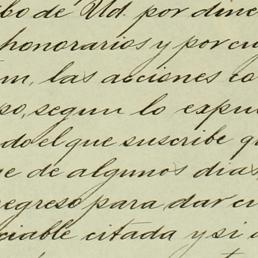 ibo de Ud. por dine
honorarios y por cu
m, las acciones co
so, segun lo expu
do el que suscribe q
e de algunos dias,
regreso para dar cu
ciable citada y si a